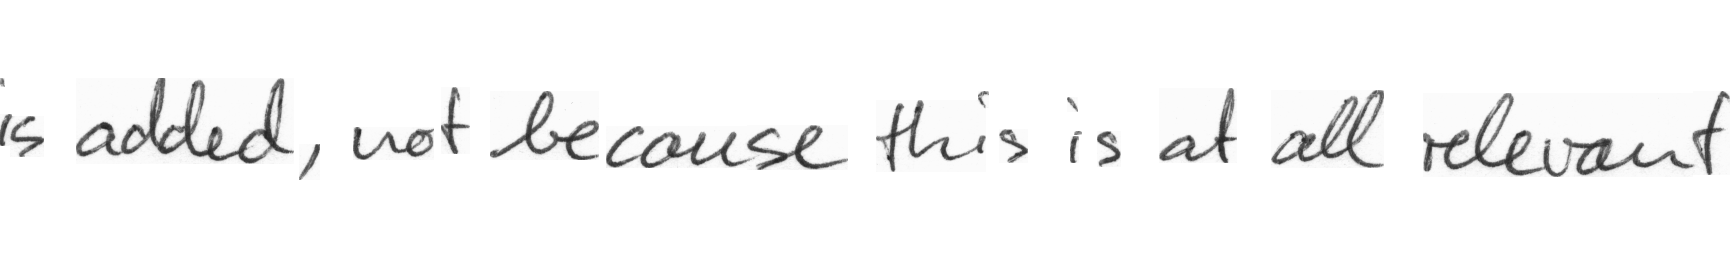 is added, not because this is at all relevant